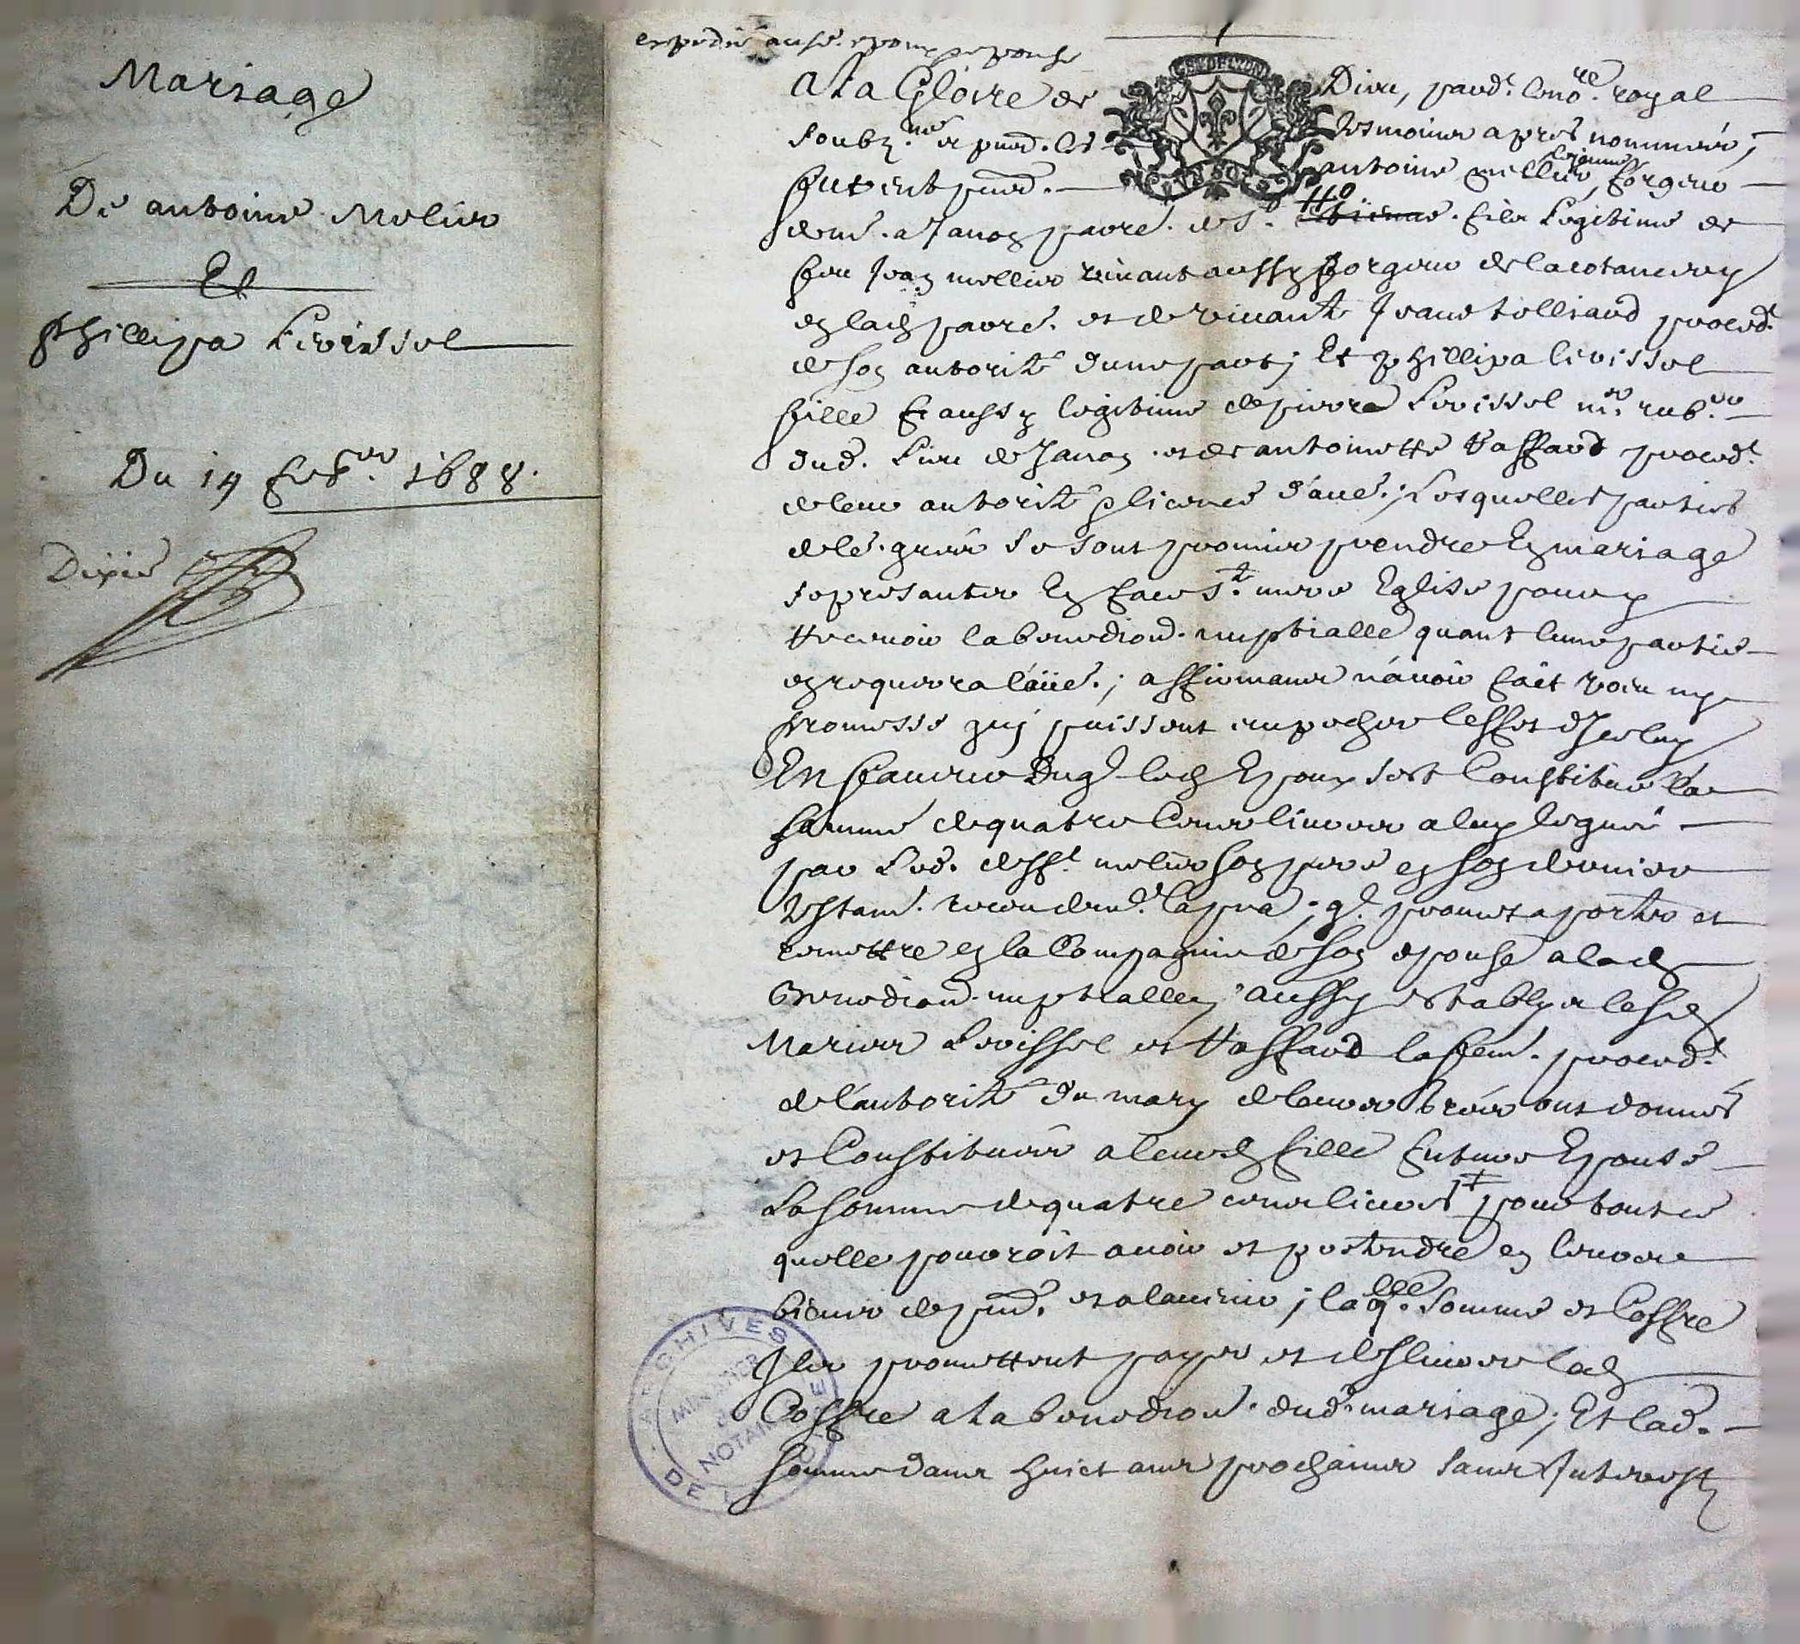 Mariage
De antoine Melier
Et
phillipa Livissel
Du 14 feb.er 1688.
expedié aus.
a la Gloire de Dieu, pard.t no.re royal
soubz.né et pnd. les tesmoins apres nommés,
furent pnd. antoine mellier forgeur
dem. a Janon parre. de S.t fils Legitime de
feu Jean mellier vivant aussy forgeur de la cotanciery
en lad parre. et de vivante Jeane tolliard proced.t
de son autorité dune part; Et phillipa livissel
fille aussy legitime de pierre Livissel m.e rub.er
dud. Lieu de Janon et de antoinette Vaffard proced.t
de leur autorité licence d'aue.; Lesquelles parties
de le. grée se sont promis prendre En mariage
se presenter En face s.te mere Eglise pour y
recevoir la benediond. nuptialle quant lune partie
en requerra l'aue.; affirmants n'avoir fait voeu ny
promesse quy puissent empecher leffet diceluy
En faveur Duq.l led Epoux sest Constitué la
somme de quatre Cens livres a luy leguée
par Led. deff.t melier son pere en son dernier
testam. receu la pnd; q.l promet aporter et
remettre en la Compagnie de son epouse a lad
Benediond. nuptialle, aussy establys lesd
Mariés Livissel et Vaffard la fem. proced.t
de l'autorité du mary de leurs grées ont donnés
et Constitués a leurd fille future Epouse
La somme de quatre cens livres # pour tout ce
quelle pouroit avoir et pretendre en leurs
biens de pnd. et a lavenir; laq.lle somme et Coffre
Ils promettent payer et deslivrer lad
Coffre a la benediond. dud. mariage; Et lad.
somme dans huict ans prochains sans Interest
ARCHIVES
MINUTIER
NOTAIRE
DE